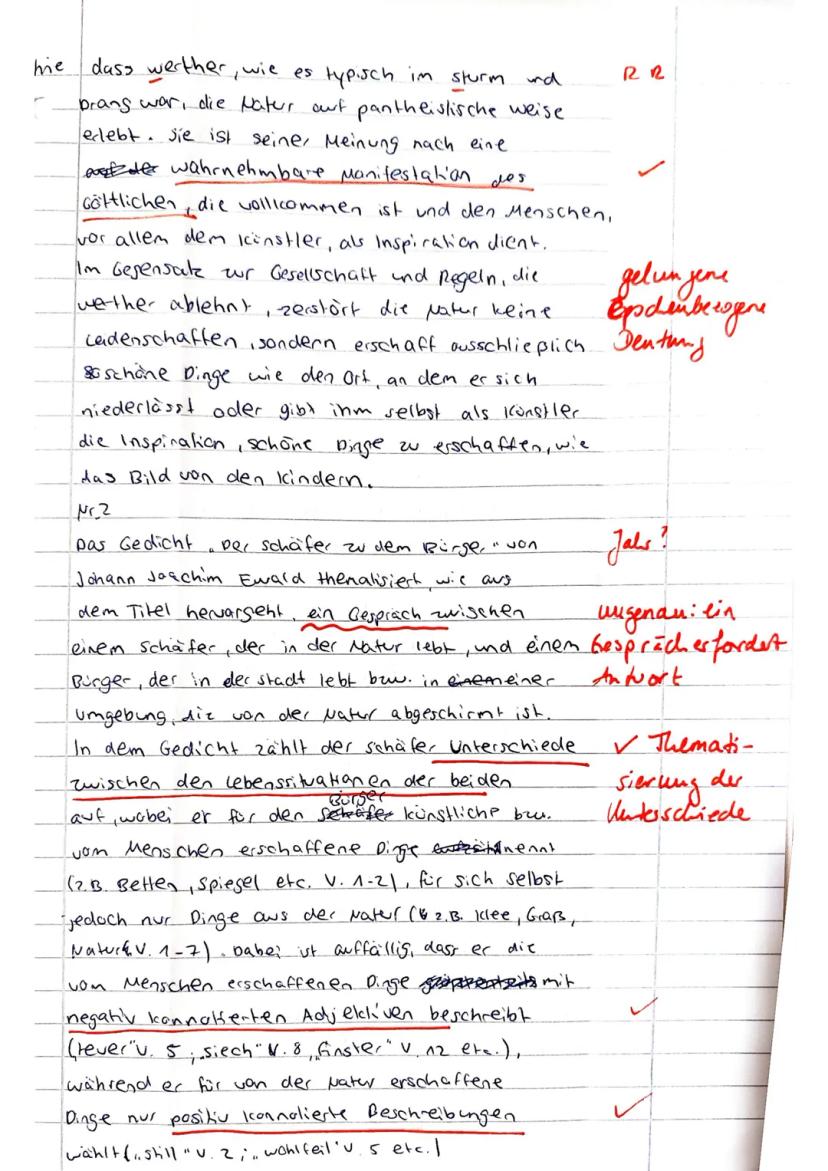 hie dass werther, wie es typisch im sturm und R R
Drang war, die Natur auf pantheistische weise
erlebt. Sie ist seiner Meinung nach eine
wahrnehmbare Manifestation des ✓
Göttlichen, die vollkommen ist und den Menschen,
vor allem dem Künstler, als Inspiration dient.
Im Gegensatz zur Gesellschaft und Regeln, die gelungene
werther ablehnt, zerstört die Natur keine Epochenbezogene
Leidenschaften, sondern erschaff ausschließlich Deutung
schöne Dinge wie den Ort, an dem er sich
niederlässt oder gibt ihm selbst als Künstler
die Inspiration, schöne Dinge zu erschaffen, wie
das Bild von den Kindern.
Nr. 2
Das Gedicht „Der Schäfer zu dem Bürger" von Jahr?
Johann Joachim Ewald thematisiert, wie aus
dem Titel hervorgeht, ein Gespräch zwischen ungenau: ein
einem Schäfer, der in der Natur lebt, und einem Gespräch erfordert
Bürger, der in der Stadt lebt bzw. in einer Antwort
Umgebung, die von der Natur abgeschirmt ist.
In dem Gedicht zählt der Schäfer Unterschiede ✓ Themati-
zwischen den Lebenssituationen der beiden sierung der
auf, wobei er für den Bürger künstliche bzw. Unterschiede
vom Menschen erschaffene Dinge nennt
(z.B. Betten, Spiegel etc. V. 1-2), für sich selbst
jedoch nur Dinge aus der Natur (z.B. Klee, Graß,
Natur V. 1-7). Dabei ist auffällig, dass er die
vom Menschen erschaffenen Dinge mit
negativ konnotierten Adjektiven beschreibt ✓
(teuer" V. 5; „siech" V. 8, „finster" V. 12 etc.),
während er für von der Natur erschaffene
Dinge nur positiv konnotierte Beschreibungen ✓
wählt („still" V. 2; „wohlfeil" V. 5 etc.)